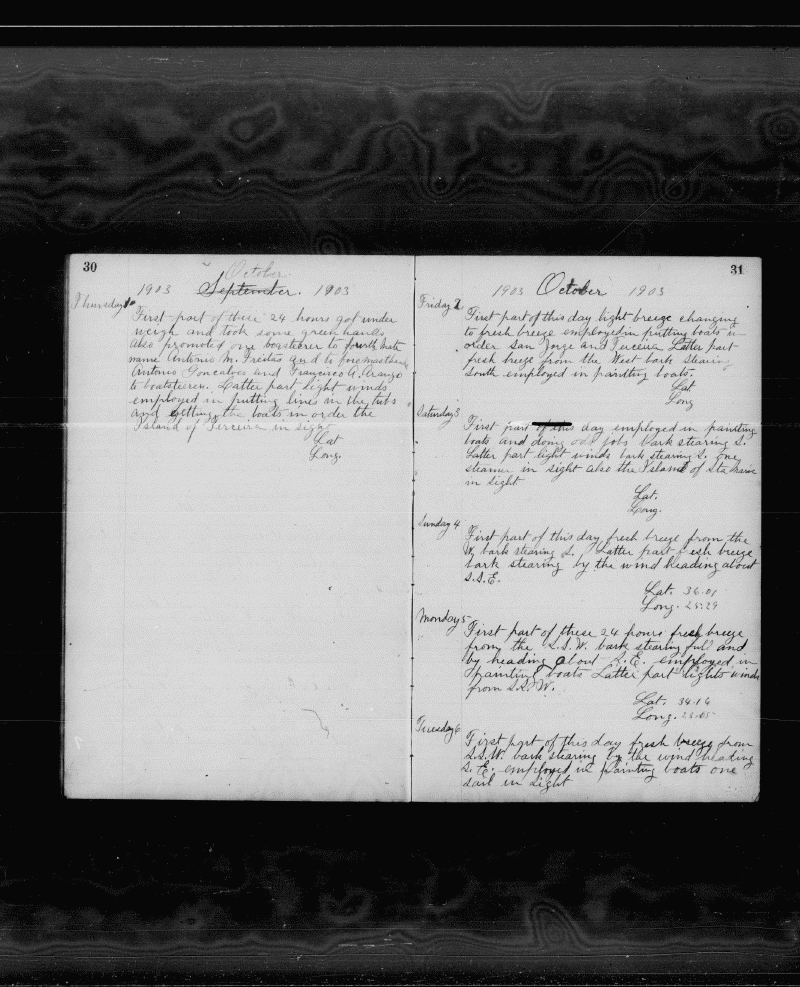 30
October
1903 September. 1903
Thursday 1
First part of these 24 hours got under
weigh and took some green hands
also promoted one boatsteerer to fourth mate
name Antonio M. Freitas and to foremasthand
Antonio Goncalves and Francisco A. Araujo
to boatsteerer. Latter part light winds
employed in putting lines in the tubs
and getting the boats in order the
Island of Terceira in sight
Lat
Long.
31
1903 October 1903
Friday 2
First part of this day light breeze changing
to fresh breeze employed in putting boats in
order San Jorge and Terceira Latter part
fresh breeze from the West bark stearing
South employed in painting boats.
Lat
Long
Saturday 3
First part of this day employed in painting
boats and doing odd jobs bark stearing S.
Latter part light winds bark stearing S. one
steamer in sight also the Island of Sta Maria
in sight
Lat.
Long.
Sunday 4
First part of this day fresh breeze from the
W. bark stearing S. Latter part fresh breeze
bark stearing by the wind heading about
S.S.E.
Lat. 36.01
Long. 25.29
Monday 5
First part of these 24 hours fresh breeze
from the S.S.W. bark stearing full and
by heading about S.E. employed in
painting boats Latter part lights winds
from S.S.W.
Lat. 34.16
Long. 25.05
Tuesday 6
First part of this day fresh breeze from
S.S.W. bark stearing by the wind heading
S.E. employed in painting boats one
sail in sight